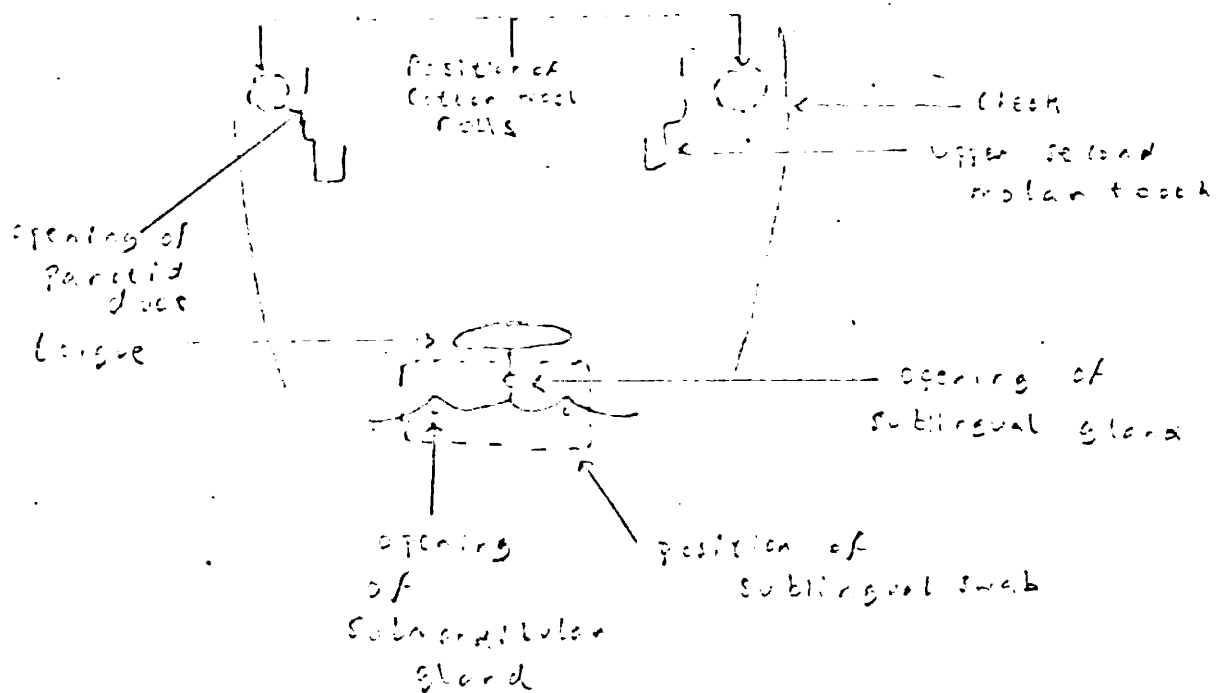 Position of
Cotton wool
rolls
Cheek
upper second
molar tooth
opening of
parotid
duct
tongue
opening of
sublingual gland
opening
of
submandibular
gland
position of
sublingual swab